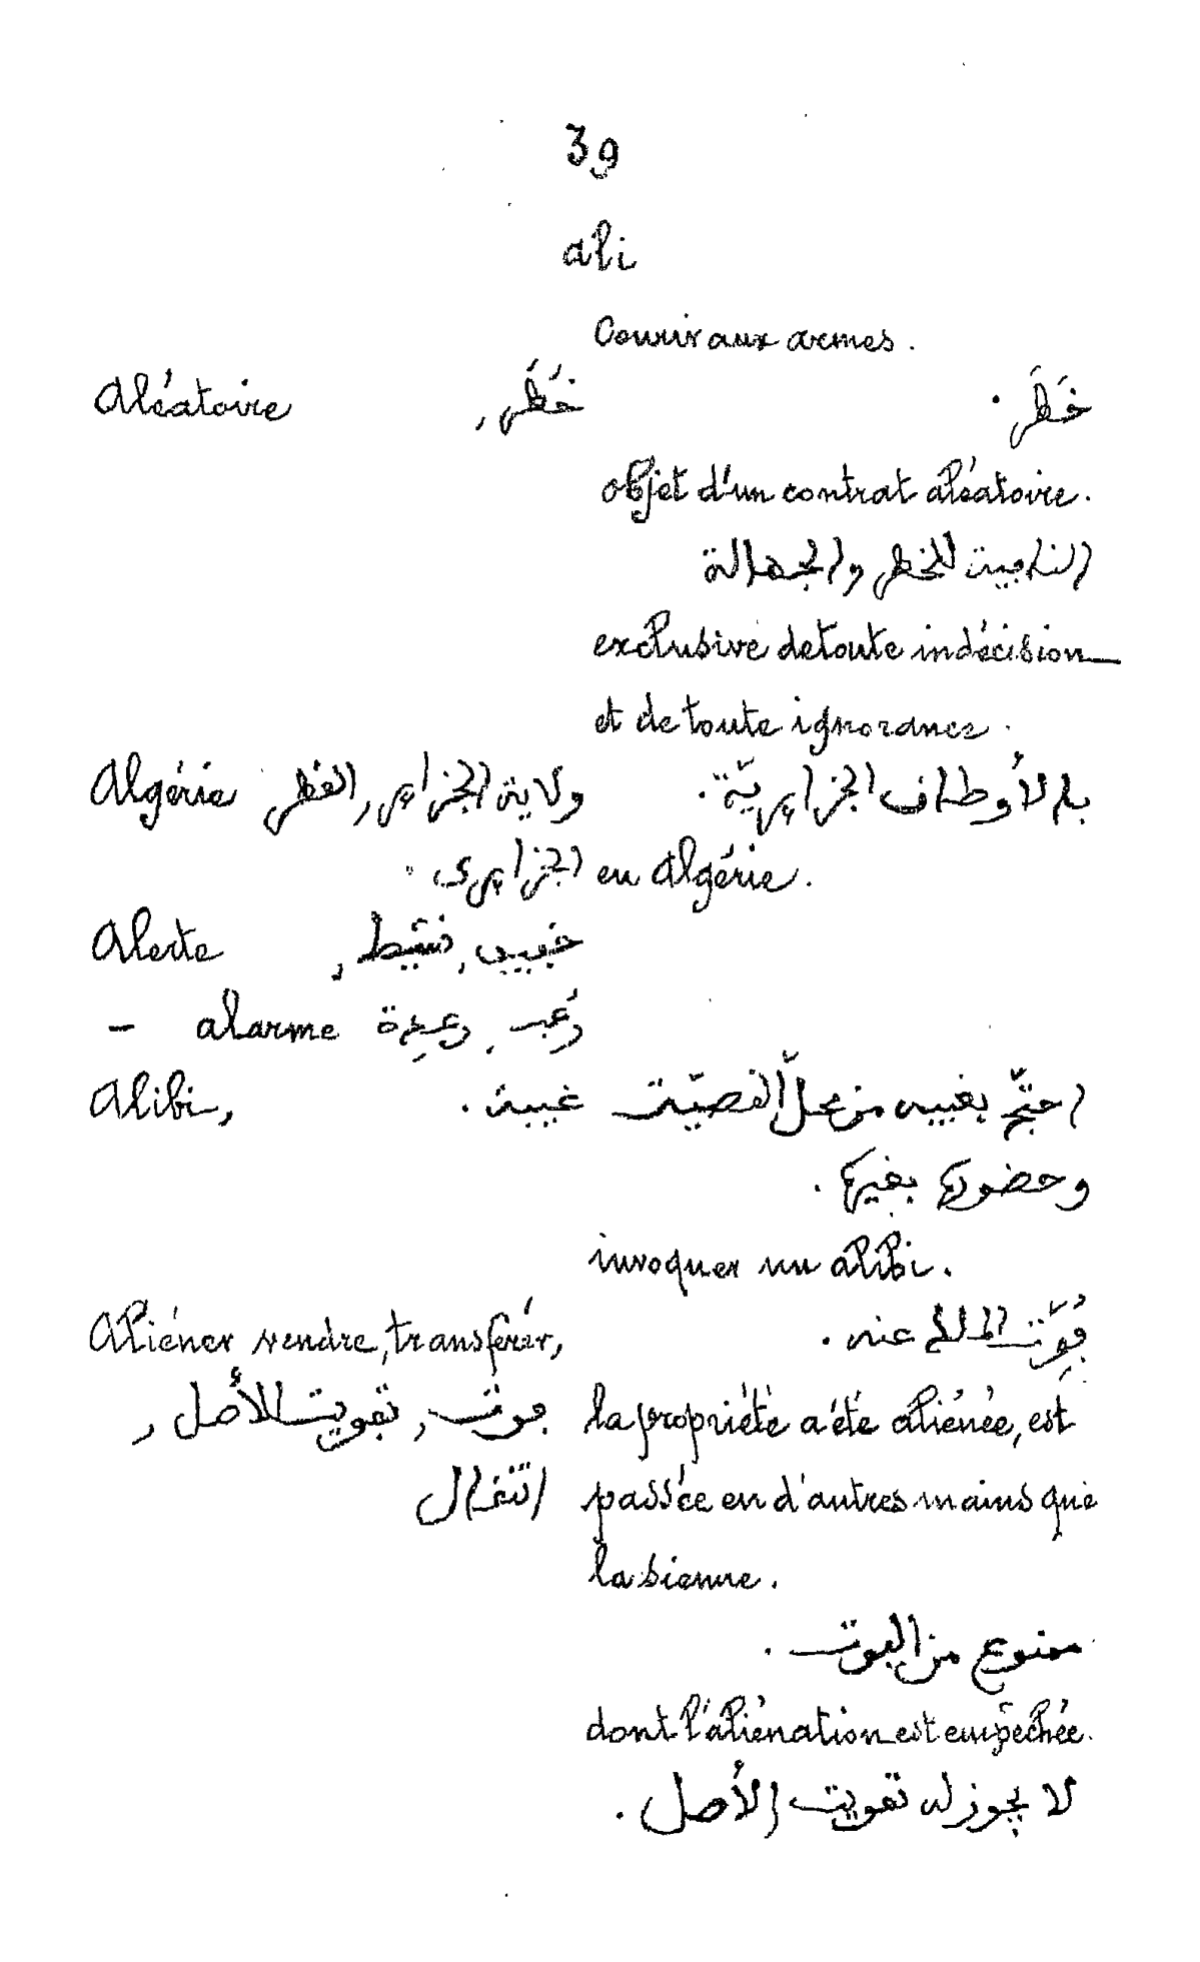 39
ali
Courir aux armes.
Aléatoire خَطَر, خَطَر.
objet d'un contrat aléatoire.
النافية للخطر والجهالة
exclusive de toute indécision
et de toute ignorance.
Algérie ولاية الجزاير, القطر بالأوطان الجزايريّة.
الجزايرى. en Algérie.
Alerte نشيط,
– alarme
Alibi, غيبة. احتجّ بغيبه من محلّ القضيّة
وحضوره بغيرها.
invoquer un alibi.
Aliéner vendre, transférer, فُوِّت الملك عنه.
فوت, تفويت الأصل, la propriété a été aliénée, est
انتقال passée en d'autres mains que
la sienne.
ممنوع من الفوت.
dont l'aliénation est empêchée.
لا يجوز له تفويت الأصل.